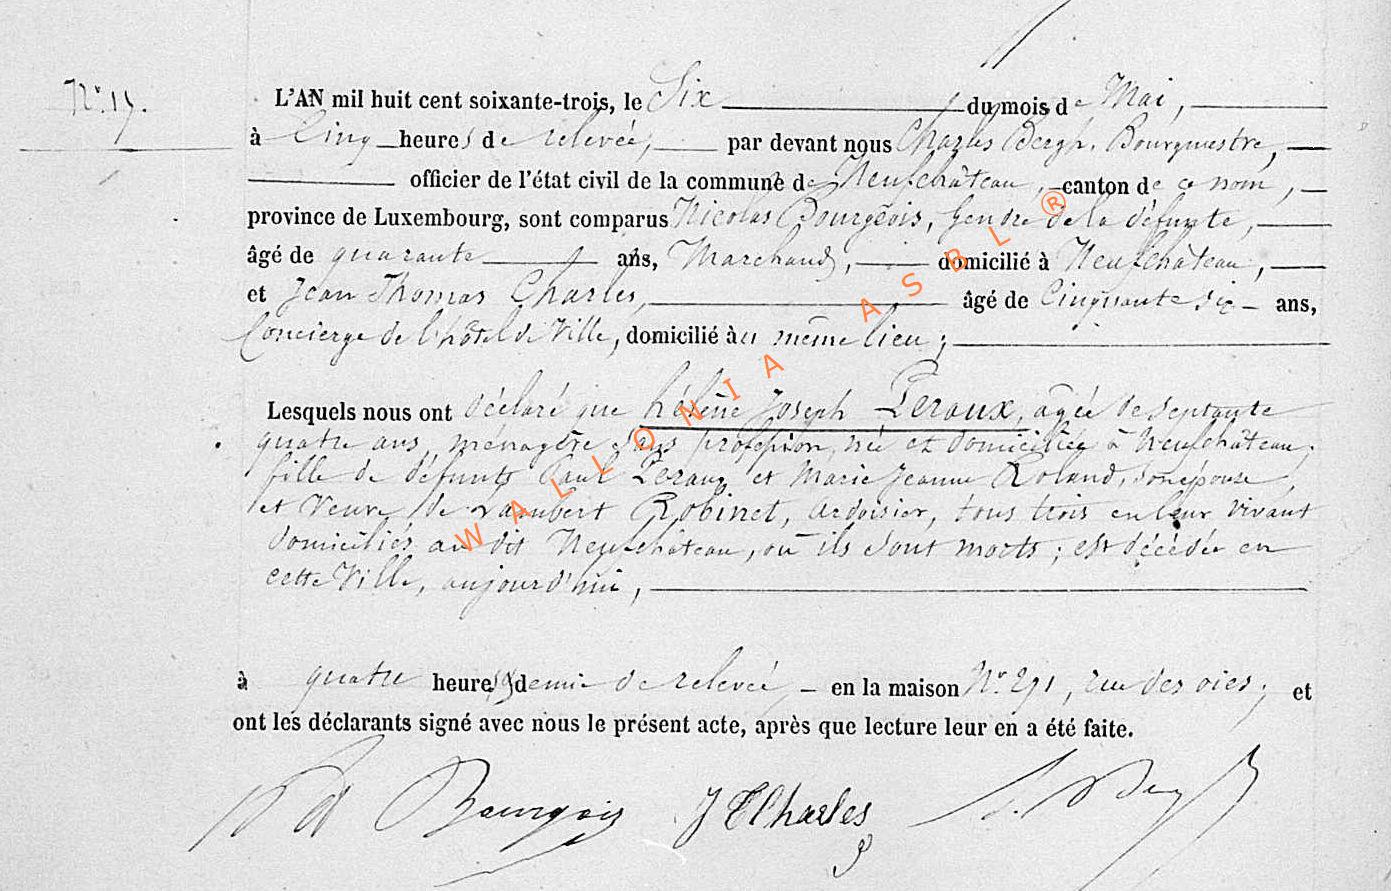 N° 19.
L'AN mil huit cent soixante-trois, le Six du mois de Mai,
à Cinq heures de relevée, par devant nous Charles Bergh, Bourgmestre,
officier de l'état civil de la commune de Neufchâteau, canton de ce nom,
province de Luxembourg, sont comparus Nicolas Bourgeois, Gendre de la défunte,
âgé de quarante ans, Marchand, domicilié à Neufchâteau,
et Jean Thomas Charles, âgé de Cinquante six ans,
Concierge de l'hôtel de Ville, domicilié au même lieu;
Lesquels nous ont déclaré que hélène Joseph Peraux, agée de septante
quatre ans, ménagère sans profession, née et domiciliée à Neufchâteau,
fille de défunts Paul Peraux et Marie Jeanne Roland, son épouse,
et Veuve de Lambert Robinet, ardoisier, tous trois en leur vivant
domiciliés au dit Neufchâteau, où ils sont morts; est décédée en
cette Ville, aujourd'hui,
à quatre heures & demie de relevée, en la maison N° 291, rue des oies; et
ont les déclarants signé avec nous le présent acte, après que lecture leur en a été faite.
Bourgeois J T Charles
WALLONIA ASBL ®